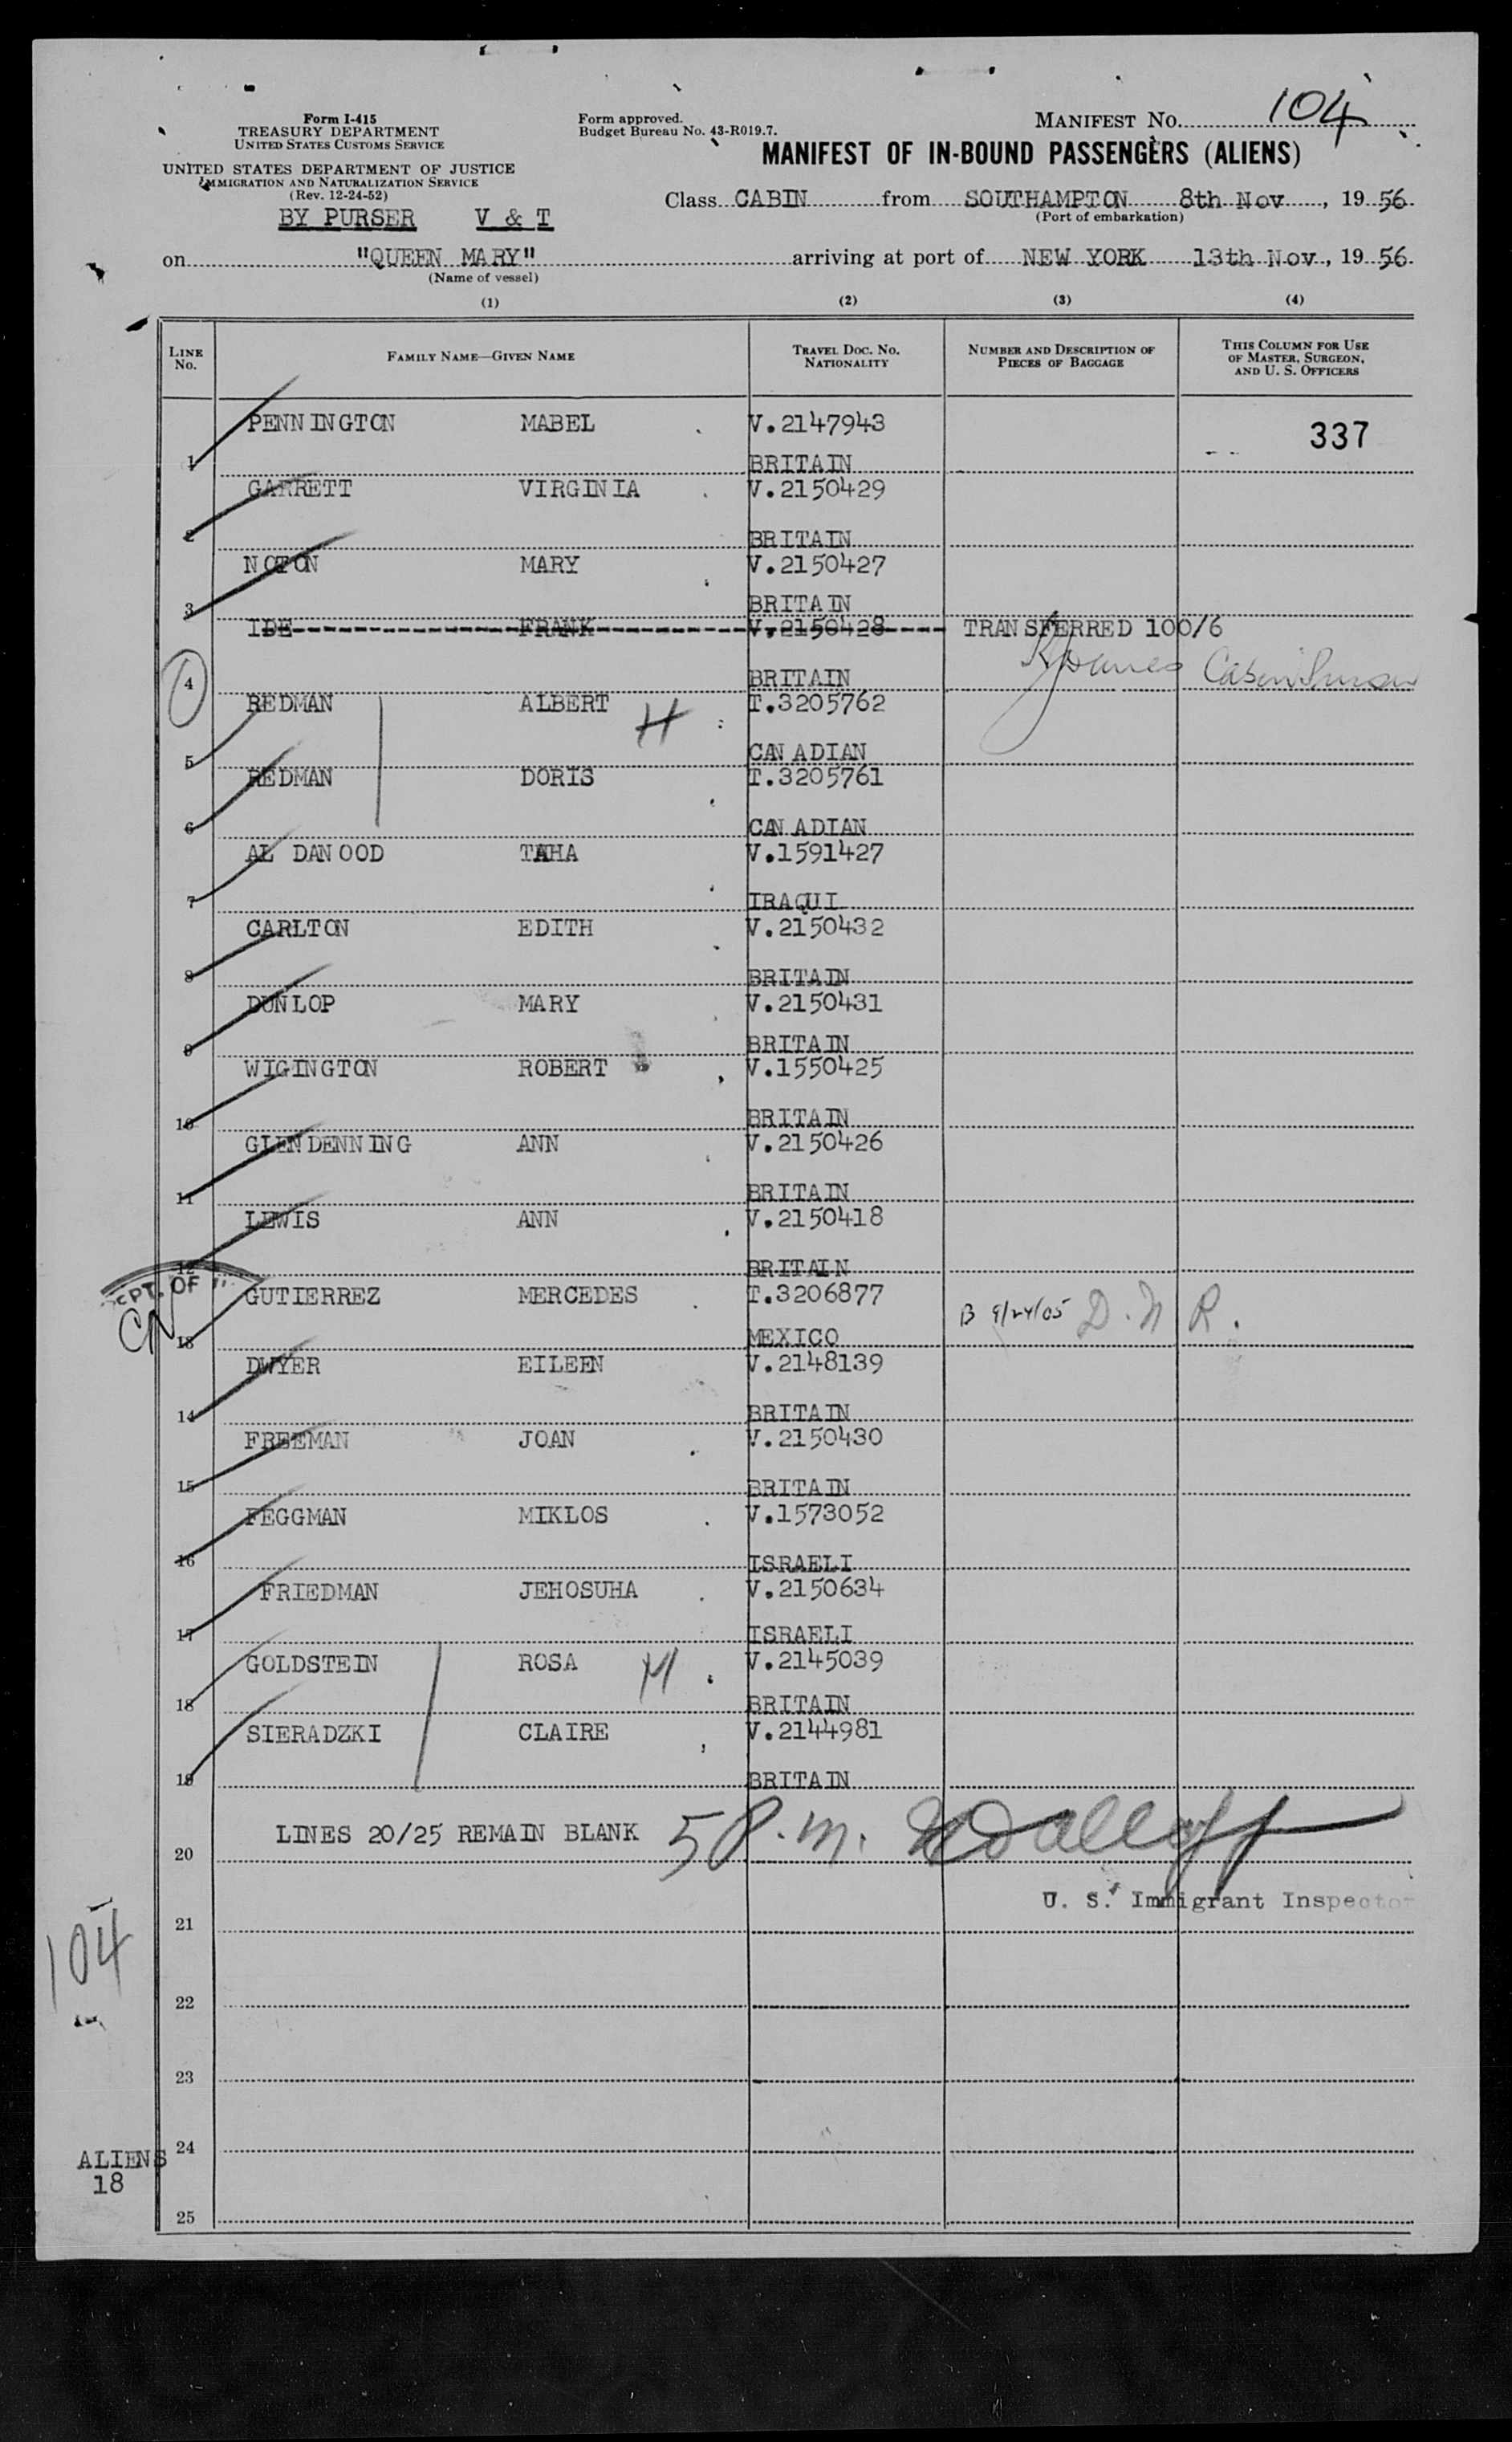 Form I-415
TREASURY DEPARTMENT
UNITED STATES CUSTOMS SERVICE
UNITED STATES DEPARTMENT OF JUSTICE
IMMIGRATION AND NATURALIZATION SERVICE
(Rev. 12-24-52)
BY PURSER V & T
Form approved.
Budget Bureau No. 43-R019.7.
MANIFEST NO. 104
MANIFEST OF IN-BOUND PASSENGERS (ALIENS)
Class CABIN from SOUTHAMPTON 8th Nov, 19 56
(Port of embarkation)
on "QUEEN MARY" arriving at port of NEW YORK 13th Nov, 19 56
(Name of vessel)
(1) (2) (3) (4)
LINE NO. FAMILY NAME—GIVEN NAME TRAVEL DOC. NO. NATIONALITY NUMBER AND DESCRIPTION OF PIECES OF BAGGAGE THIS COLUMN FOR USE OF MASTER, SURGEON, AND U. S. OFFICERS
PENNINGTON MABEL V.2147943 337
1 BRITAIN
GARRETT VIRGINIA V.2150429
2 BRITAIN
NOTON MARY V.2150427
3 BRITAIN
IDE FRANK V.2150428 TRANSFERRED 100/6
4 BRITAIN
REDMAN ALBERT H T.3205762
5 CANADIAN
REDMAN DORIS T.3205761
6 CANADIAN
AL DANOOD TAHA V.1591427
7 IRAQUI
CARLTON EDITH V.2150432
8 BRITAIN
DUNLOP MARY V.2150431
9 BRITAIN
WIGINGTON ROBERT V.1550425
10 BRITAIN
GLENDENNING ANN V.2150426
11 BRITAIN
LEWIS ANN V.2150418
12 BRITAIN
EPT. OF
GUTIERREZ MERCEDES T.3206877 B 9/24/05 D.N R.
CN 13 MEXICO
DWYER EILEEN V.2148139
14 BRITAIN
FREEMAN JOAN V.2150430
15 BRITAIN
FEGGMAN MIKLOS V.1573052
16 ISRAELI
FRIEDMAN JEHOSUHA V.2150634
17 ISRAELI
GOLDSTEIN ROSA M V.2145039
18 BRITAIN
SIERADZKI CLAIRE V.2144981
19 BRITAIN
LINES 20/25 REMAIN BLANK 5 P.m.
20
U. S. Immigrant Inspector
21
104
22
23
24
ALIENS
18
25